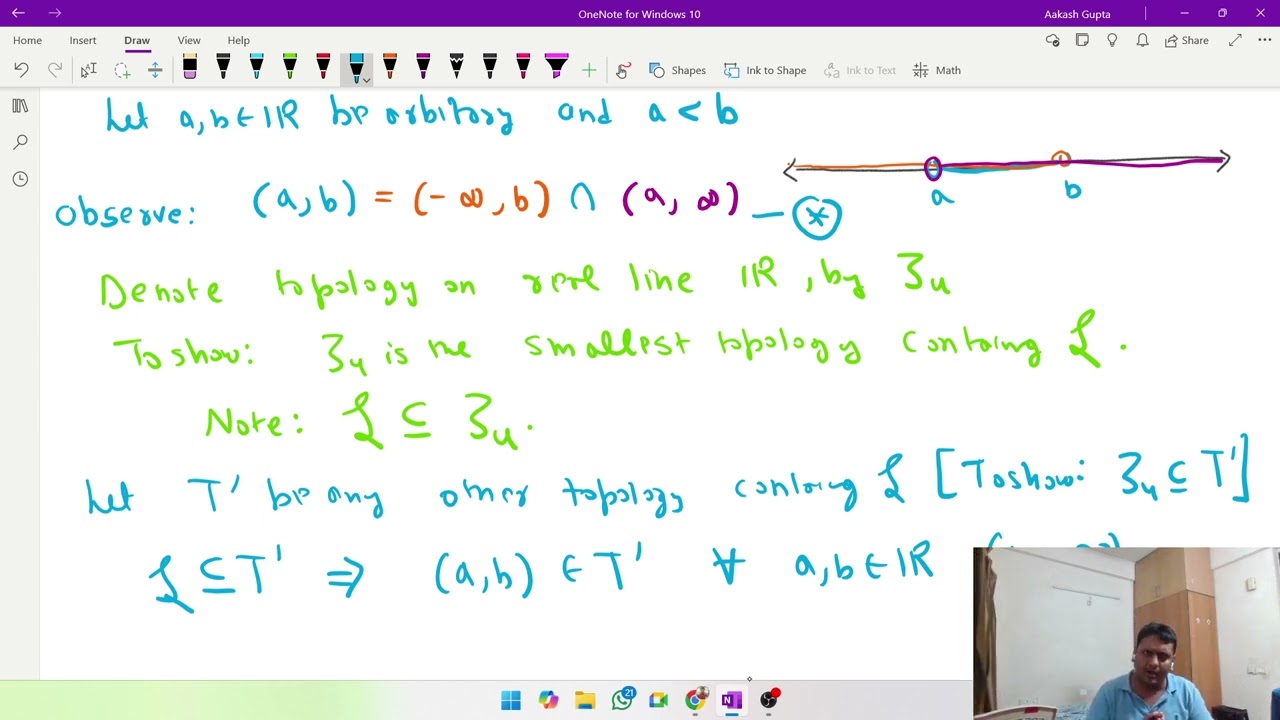 OneNote for Windows 10
Aakash Gupta
Home Insert Draw View Help
Share
Shapes Ink to Shape Ink to Text Math
Let a,b∈IR be arbitory and a < b
a b
Observe: (a,b) = (-∞,b) ∩ (a,∞) — ⊛
Denote topology on real line IR, by ℑu
To show: ℑu is the smallest topology containg ℒ.
Note: ℒ ⊆ ℑu.
Let T' be any other topology containg ℒ [To show: ℑu ⊆ T']
ℒ ⊆ T' ⇒ (a,b) ∈ T' ∀ a,b ∈ IR
21